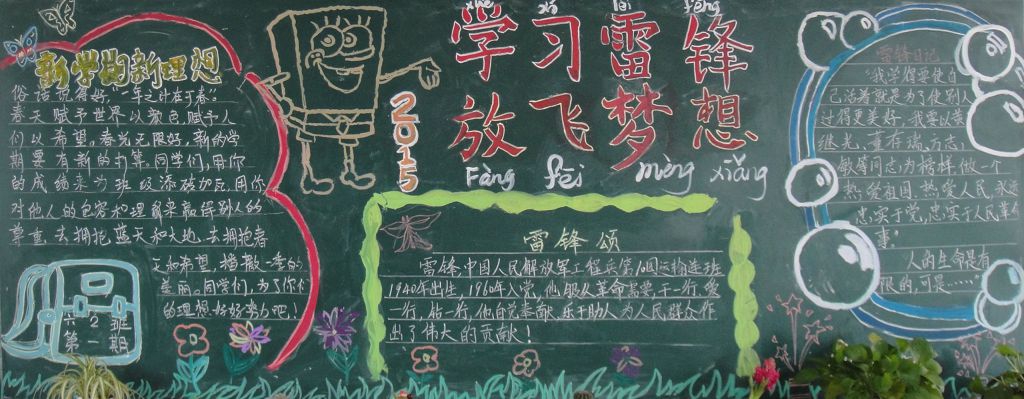 新学期新理想
俗话说得好，"一年之计在于春"
春天赋予世界以颜色，赋予人
们以希望，春光无限好，新的学
期要有新的打算，同学们，用你
的成绩来为班级添砖加瓦，用你
对他人的包容和理解来赢得别人的
尊重，去拥抱蓝天和大地，去拥抱春
天和希望，播撒一季的
美丽，同学们，为了你们
的理想好好努力吧！
六 2 班
第一期
2015
xué xí léi fēng
学习雷锋
放飞梦想
Fàng fēi mèng xiǎng
雷锋颂
雷锋，中国人民解放军工程兵第10团运输连班
1940年出生，1960年入党，他服从革命需要，干一行，爱
一行，钻一行，他自觉奉献，乐于助人，为人民群众作
出了伟大的贡献！
雷锋日记
"我觉得要使自
己活着就是为了使别人
过得更美好，我要以黄
继光，董存瑞，方志
敏等同志为榜样，做一个
热爱祖国，热爱人民，永远
忠实于党，忠实于人民革命
事"
人的生命是有
限的，可是……